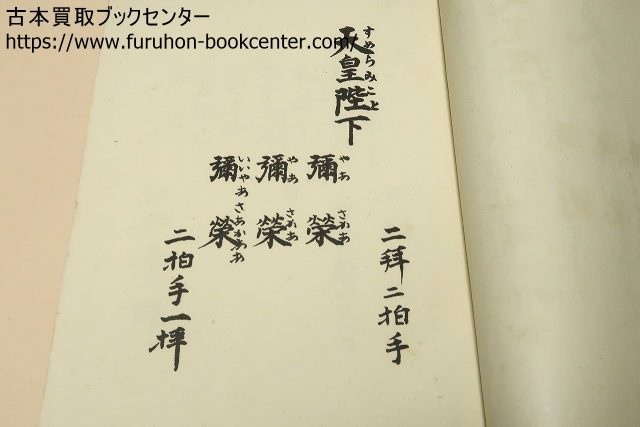 古本買取ブックセンター
https://www.furuhon-bookcenter.com/
二拜二拍手
天皇陛下
すめらみこと
彌榮
やあ さかあ
彌榮
やあ さかあ
彌榮
いいやあ さあかあああ
二拍手一拝